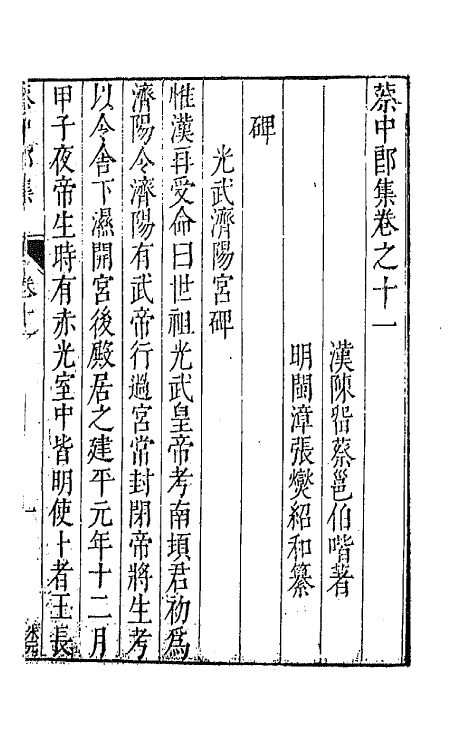 蔡中郎集卷之十一
漢陳留蔡邕伯喈著
明閩漳張燮紹和纂
碑
光武濟陽宮碑
惟漢再受命曰世祖光武皇帝考南頓君初為
濟陽令濟陽有武帝行過宮常封閉帝將生考
以令舍下濕開宮後殿居之建平元年十二月
甲子夜帝生時有赤光室中皆明使卜者王長
蔡中郎集